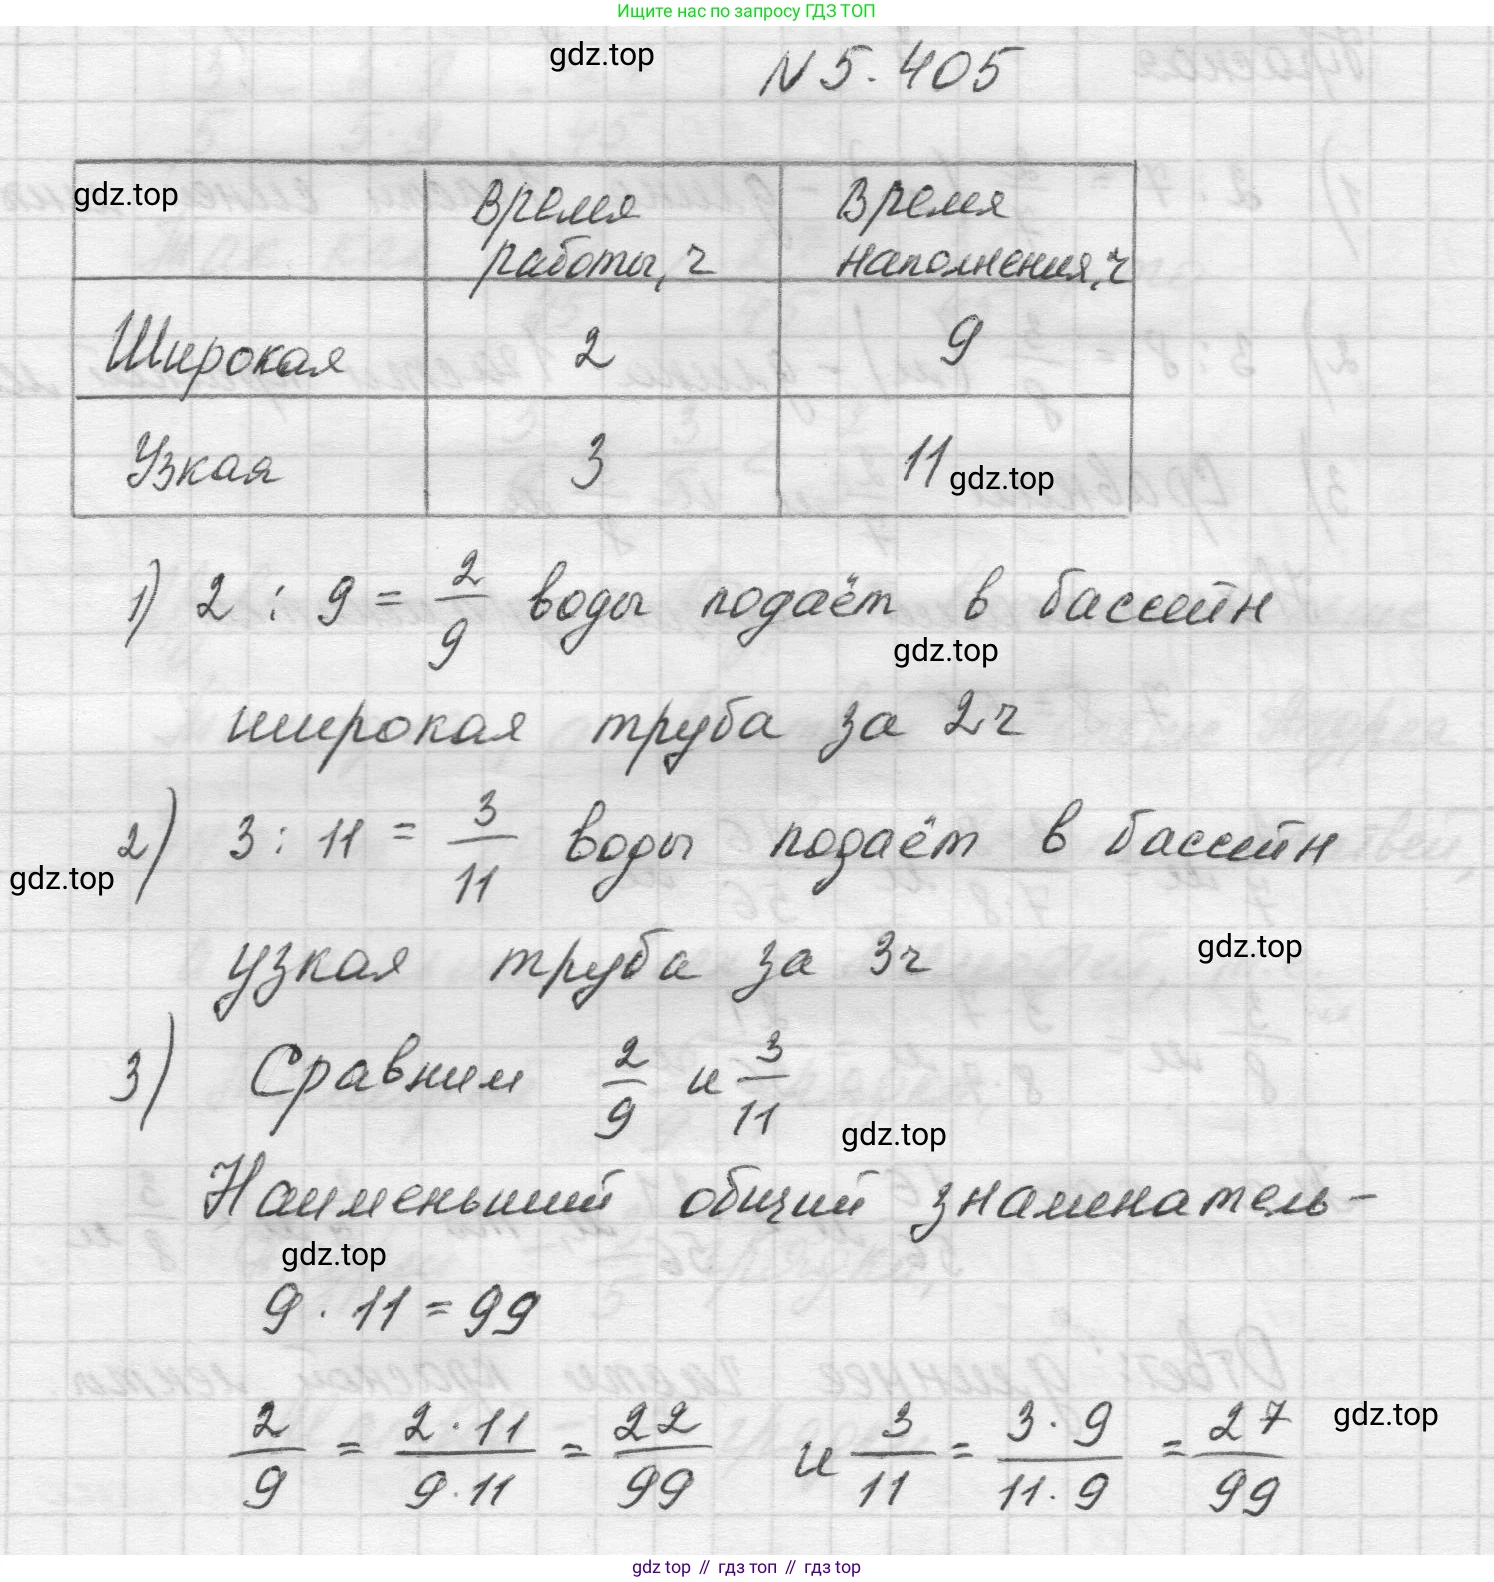 Ищите нас по запросу ГДЗ ТОП
gdz.top
N 5.405
gdz.top
Время работы, ч
Время наполнения, ч
Широкая 2 9
Узкая 3 11
gdz.top
1) 2 : 9 = 2/9 воды подаёт в бассейн
gdz.top
широкая труба за 2ч
2) 3 : 11 = 3/11 воды подаёт в бассейн
gdz.top
узкая труба за 3ч
gdz.top
3) Сравним 2/9 и 3/11
gdz.top
Наименьший общий знаменатель -
gdz.top
9 · 11 = 99
2/9 = 2·11/9·11 = 22/99 и 3/11 = 3·9/11·9 = 27/99
gdz.top
gdz top // гдз топ // гдз top